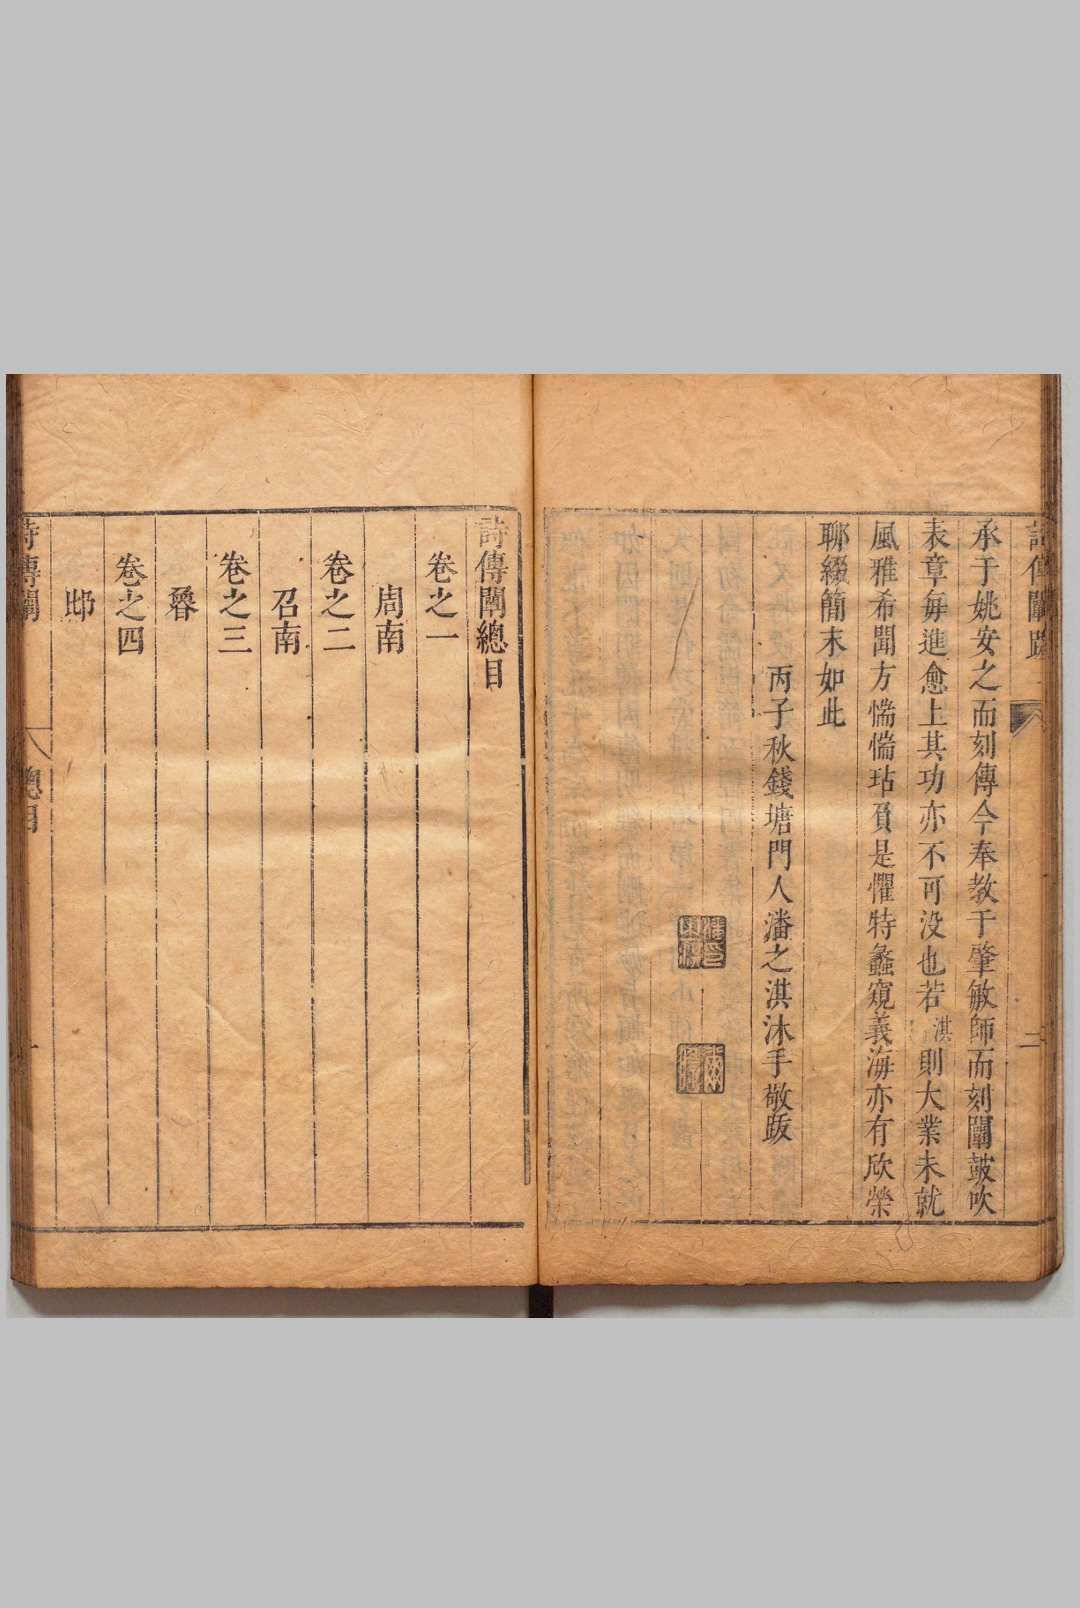 詩傳闡跋
二
承于姚安之而刻傳今奉教于肇敏師而刻闡鼓吹
表章每進愈上其功亦不可没也若淇則大業未就
風雅希聞方惴惴玷負是懼特蠡窺義海亦有欣榮
聊綴簡末如此
丙子秋錢塘門人潘之淇沐手敬跋
詩傳闡總目
卷之一
周南
卷之二
召南
卷之三
魯
卷之四
邶
詩傳闡
總目
一